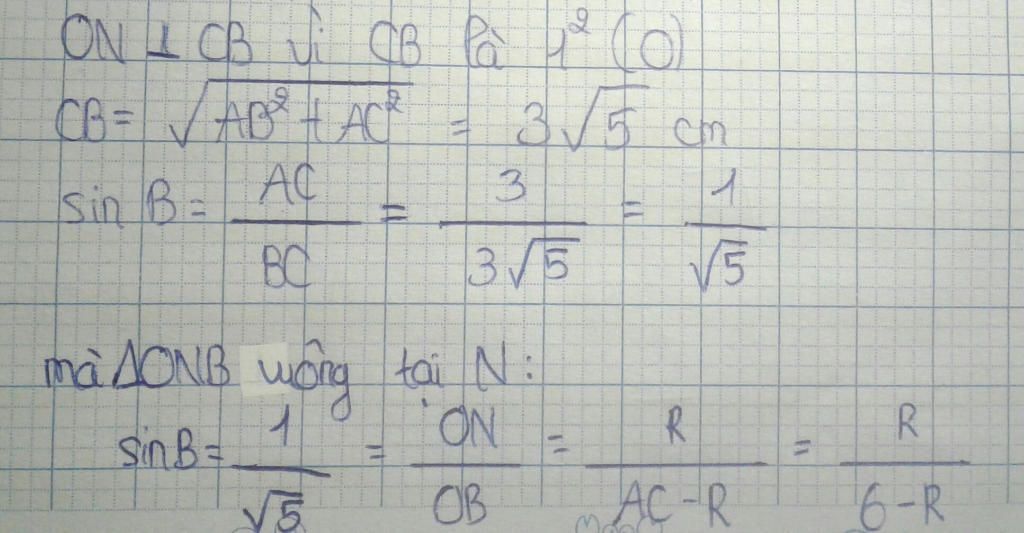 ON ⊥ CB vì CB là 1² (O)
CB = √(AB² + AC²) = 3√5 cm
sin B = AC/BC = 3/(3√5) = 1/√5
mà ΔONB vuông tại N:
sin B = 1/√5 = ON/OB = R/(AC - R) = R/(6 - R)